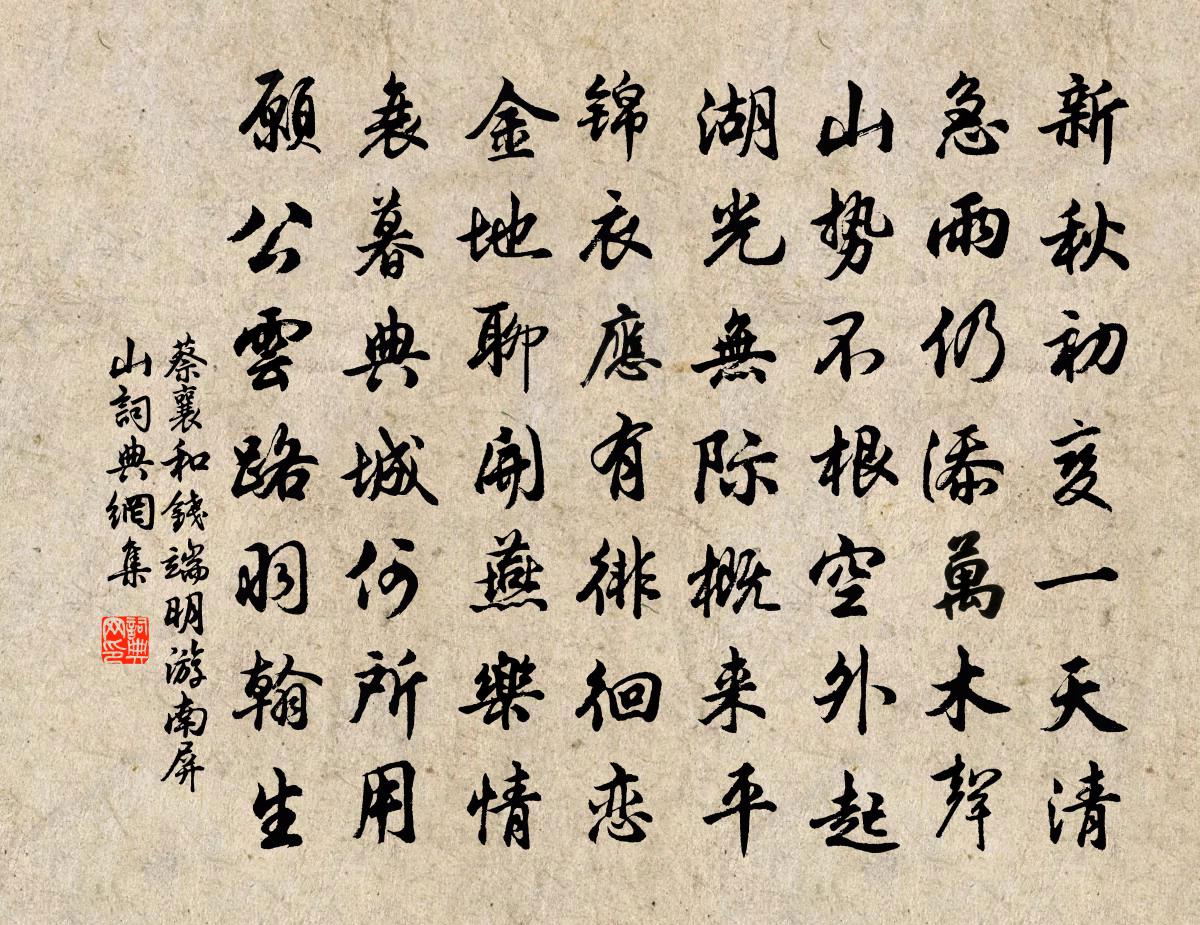 新秋初变一天清
急雨仍添萬木聲
山势不根空外起
湖光無际概来平
锦衣應有徘徊恋
金地聊開燕樂情
衰暮典城何所用
願公雲路羽翰生
蔡襄和錢端明游南屏
山詞典網集
詞典
网印